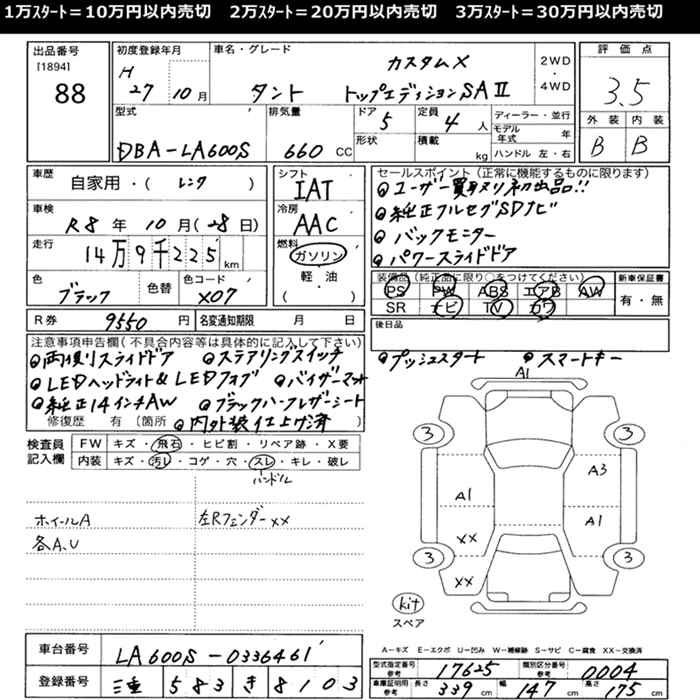 1万スタート＝10万円以内売切　2万スタート＝20万円以内売切　3万スタート＝30万円以内売切
出品番号
[1894]
88
初度登録年月
H
27 10 月
車名・グレード
カスタムX
タント トップエディションSAⅡ
2WD
・
4WD
評価点
3.5
外装 内装
B B
型式
DBA-LA600S
排気量
660 CC
ドア
5
形状
定員
4 人
積載
kg
ディーラー・並行
モデル年式 年
ハンドル 左・右
車歴
自家用・( レンタ )
車検
R8 年 10 月 (28 日)
走行
14万9千225 km
色
ブラック
色替
色コード
X07
シフト
IAT
冷房
AAC
燃料
ガソリン
軽・油
( )
セールスポイント（正常に機能するものに限ります）
ユーザー買取り初出品!!
純正フルセグSDナビ
バックモニター
パワースライドドア
装備品（純正品に限り○をつけてください）
PS PW ABS エアB AW
SR ナビ TV カワ
新車保証書
有・無
R券 9550 円
名変通知期限 月 日
後日品
注意事項申告欄（不具合内容等は具体的に記入して下さい）
両側スライドドア ステアリングスイッチ
プッシュスタート スマートキー
LEDヘッドライト&LEDフォグ バイザーマット
純正14インチAW ブラックハーフレザーシート
修復歴 有 (箇所 内外装仕上げ済 )
検査員記入欄
FW キズ・飛石・ヒビ割・リペア跡・X要
内装 キズ・汚レ・コゲ・穴・スレ・キレ・破レ
ハンドル
ホイールA 左Rフェンダーxx
各A、U
A1
3 3
A3
A1 A1
XX
3 3
XX
kit
スペア
A-キズ E-エクボ U-凹み W-補修跡 S-サビ C-腐食 XX-交換済
車台番号 LA600S-0336461
登録番号 三重 583 き 8103
型式指定番号 参考 17625 類別区分番号 参考 0004
車庫証明用 参考 長さ 339 cm 幅 147 cm 高さ 175 cm